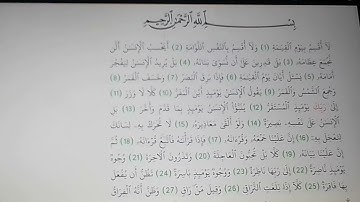 بِسْمِ ٱللَّهِ ٱلرَّحْمَٰنِ ٱلرَّحِيمِ
لَآ أُقْسِمُ بِيَوْمِ ٱلْقِيَٰمَةِ (1) وَلَآ أُقْسِمُ بِٱلنَّفْسِ ٱللَّوَّامَةِ (2) أَيَحْسَبُ ٱلْإِنسَٰنُ أَلَّن
نَّجْمَعَ عِظَامَهُۥ (3) بَلَىٰ قَٰدِرِينَ عَلَىٰٓ أَن نُّسَوِّىَ بَنَانَهُۥ (4) بَلْ يُرِيدُ ٱلْإِنسَٰنُ لِيَفْجُرَ
أَمَامَهُۥ (5) يَسْـَٔلُ أَيَّانَ يَوْمُ ٱلْقِيَٰمَةِ (6) فَإِذَا بَرِقَ ٱلْبَصَرُ (7) وَخَسَفَ ٱلْقَمَرُ (8)
وَجُمِعَ ٱلشَّمْسُ وَٱلْقَمَرُ (9) يَقُولُ ٱلْإِنسَٰنُ يَوْمَئِذٍ أَيْنَ ٱلْمَفَرُّ (10) كَلَّا لَا وَزَرَ (11)
إِلَىٰ رَبِّكَ يَوْمَئِذٍ ٱلْمُسْتَقَرُّ (12) يُنَبَّؤُا۟ ٱلْإِنسَٰنُ يَوْمَئِذٍۭ بِمَا قَدَّمَ وَأَخَّرَ (13) بَلِ
ٱلْإِنسَٰنُ عَلَىٰ نَفْسِهِۦ بَصِيرَةٌ (14) وَلَوْ أَلْقَىٰ مَعَاذِيرَهُۥ (15) لَا تُحَرِّكْ بِهِۦ لِسَانَكَ
لِتَعْجَلَ بِهِۦٓ (16) إِنَّ عَلَيْنَا جَمْعَهُۥ وَقُرْءَانَهُۥ (17) فَإِذَا قَرَأْنَٰهُ فَٱتَّبِعْ قُرْءَانَهُۥ (18) ثُمَّ
إِنَّ عَلَيْنَا بَيَانَهُۥ (19) كَلَّا بَلْ تُحِبُّونَ ٱلْعَاجِلَةَ (20) وَتَذَرُونَ ٱلْءَاخِرَةَ (21) وُجُوهٌ
يَوْمَئِذٍ نَّاضِرَةٌ (22) إِلَىٰ رَبِّهَا نَاظِرَةٌ (23) وَوُجُوهٌ يَوْمَئِذٍۭ بَاسِرَةٌ (24) تَظُنُّ أَن يُفْعَلَ
بِهَا فَاقِرَةٌ (25) كَلَّآ إِذَا بَلَغَتِ ٱلتَّرَاقِىَ (26) وَقِيلَ مَنْ رَاقٍ (27) وَظَنَّ أَنَّهُ ٱلْفِرَاقُ